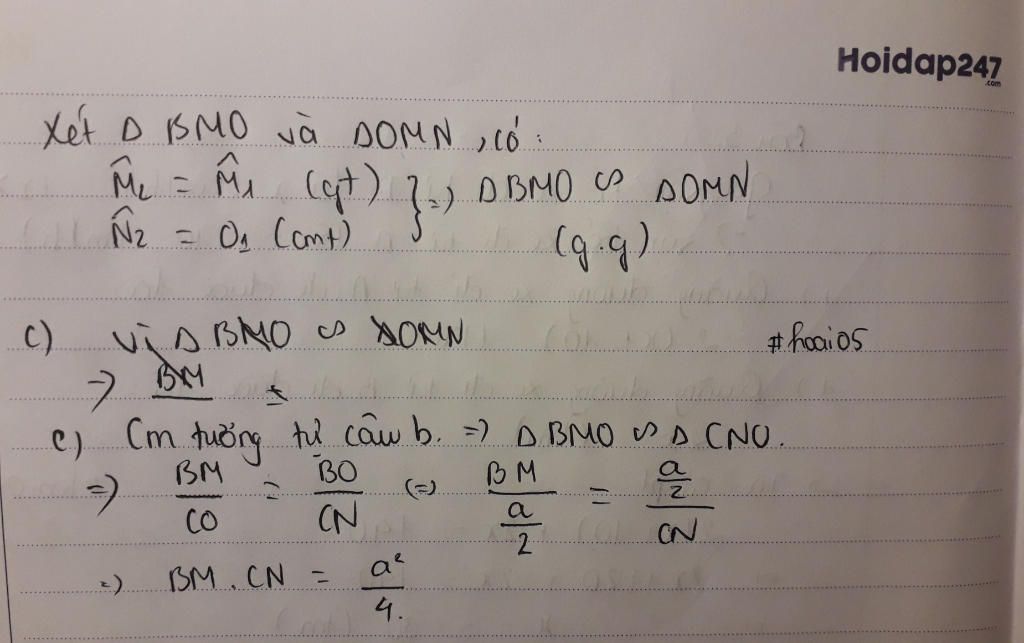 Hoidap247
.com
Xét Δ BMO và ΔOMN, có:
M̂₂ = M̂₁ (gt) } => ΔBMO ∽ ΔOMN
N̂₂ = O₁ (cmt) (g.g)
c) Vì Δ BMO ∽ ΔOMN #hoai05
=> BM/ =
c) Cm tương tự câu b. => ΔBMO ∽ Δ CNO.
=> BM/CO = BO/CN (=) BM/(a/2) = (a/2)/CN
=> BM.CN = a²/4.